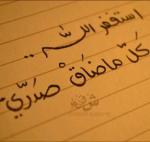 استغفر الله ..
كلّما ضاق صدري ..